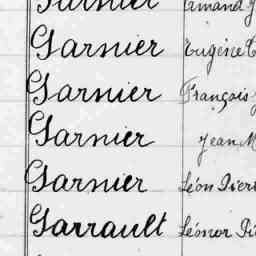 Garnier Armand
Garnier Eugène
Garnier François
Garnier Jean M
Garnier Léon Pier
Garrault Léonor Pi